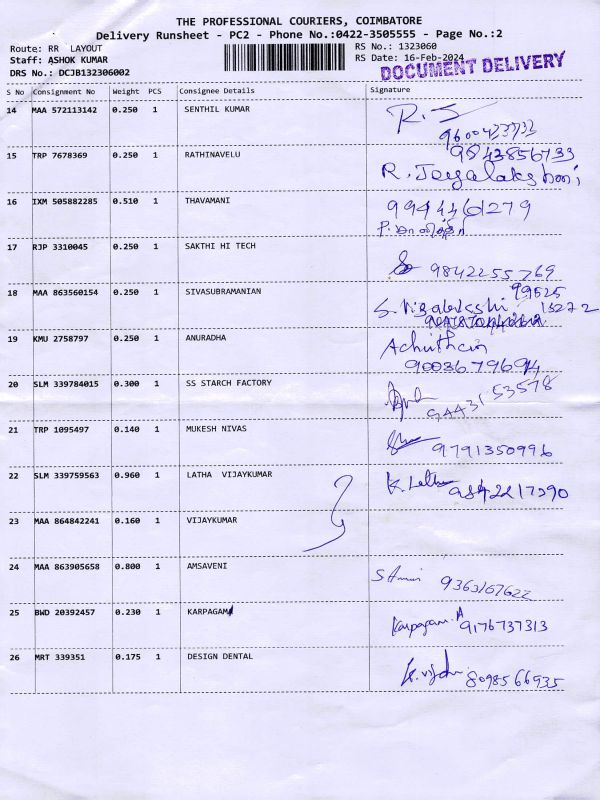 THE PROFESSIONAL COURIERS, COIMBATORE
Delivery Runsheet - PC2 - Phone No.:0422-3505555 - Page No.:2
Route: RR LAYOUT
Staff: ASHOK KUMAR
DRS No.: DCJB132306002
RS No.: 1323060
RS Date: 16-Feb-2024
DOCUMENT DELIVERY
S No Consignment No Weight PCS Consignee Details Signature
14 MAA 572113142 0.250 1 SENTHIL KUMAR
R.S
9600433733
15 TRP 7678369 0.250 1 RATHINAVELU
9843856733
R. Jeyalakshmi
16 IXM 505882285 0.510 1 THAVAMANI
9944461279
17 RJP 3310045 0.250 1 SAKTHI HI TECH
9842255769
18 MAA 863560154 0.250 1 SIVASUBRAMANIAN
99525
13272
19 KMU 2758797 0.250 1 ANURADHA
Achuthan
9003679694
20 SLM 339784015 0.300 1 SS STARCH FACTORY
9443153578
21 TRP 1095497 0.140 1 MUKESH NIVAS
9791350996
22 SLM 339759563 0.960 1 LATHA VIJAYKUMAR
K. Latha
9842217390
23 MAA 864842241 0.160 1 VIJAYKUMAR
24 MAA 863905658 0.800 1 AMSAVENI
9363167622
25 BWD 20392457 0.230 1 KARPAGAM
Karpagam. A
9176737313
26 MRT 339351 0.175 1 DESIGN DENTAL
8098566935